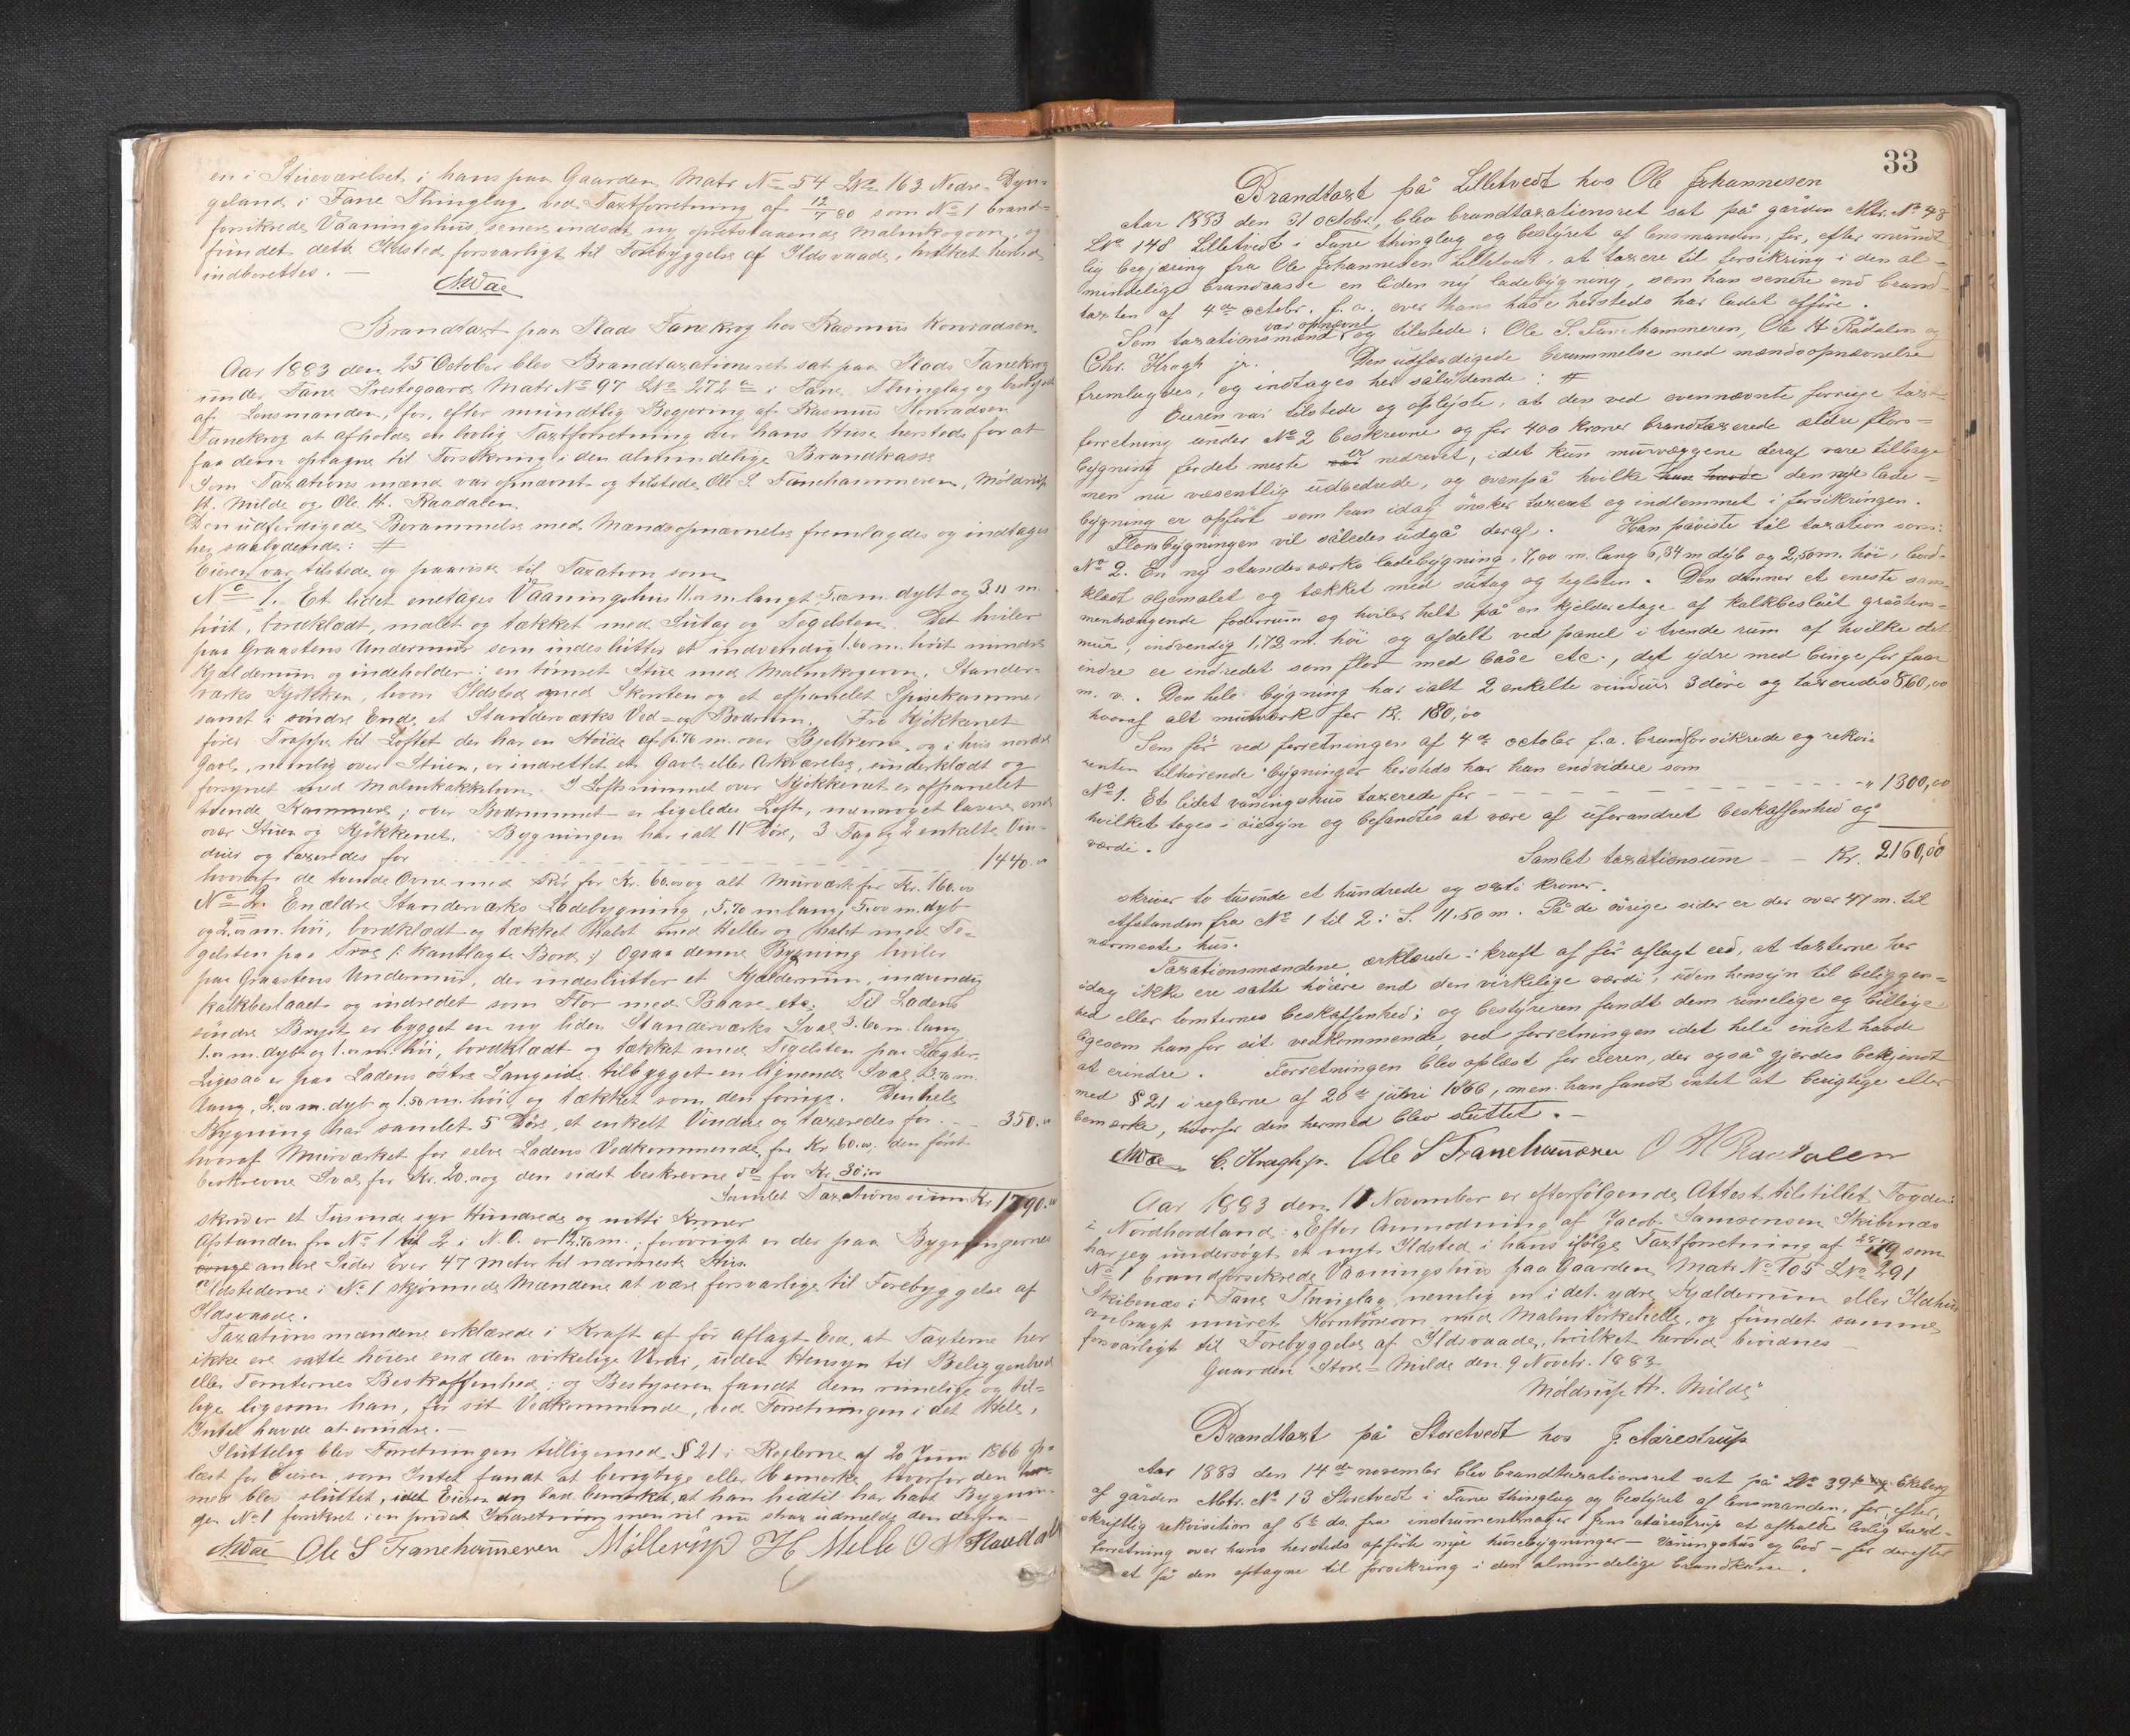 en i Stueværelset i hans paa Gaarden Matr N° 54 LNo 163 Nedre-Dyn-
geland i Fane Thinglag ved Taxtforretning af 12/7 80 som N° 1 brand-
forsikrede Vaaningshus, senere indsat ny opretstaaende Malmkogovn, og
fundet dette Ildsted forsvarligt til Forebyggelse af Ildsvaade, hvilket herved
indberettes. —
Brandtaxt paa Plads Fanekrog hos Rasmus Konradsen.
Aar 1883 den 25 October blev Brandtaxationsret sat paa Plads Fanekrog
under Fane Prestegaard Matr. No 97 LNo 272 a i Fane Thinglag og bestyret
af Lensmanden, for, efter mundtlig Begjæring af Rasmus Konradsen
Fanekrog at afholde en lovlig Taxtforretning over hans Huse hersteds for at
faa dem optagne til Forsikring i den almindelige Brandkasse
Som Taxations mænd var opnævnt og tilstede Ole S. Fanehammeren, Møldrup
H. Milde og Ole H. Raadalen.
Den udfærdigede Berammelse med Mandsopnævnelse fremlagdes og indtages
her saalydende: #
Eieren var tilstede og paaviste til Taxation som
No 1. Et lidet enetages Vaaningshus 11.00 m. langt, 5.00 m. dybt og 3.11 m.
høit, bordklædt, malet og tækket med Sutag og Tegelsten. Det hviler
paa Graastens Undermur som indeslutter et indvendig 1.60 m. høit mindre
Kjælderrum og indeholder: en tømret Stue med Malmkogeovn, Stander-
værks Kjøkken, hvori Ildsted med Skorsten og et afpanelet Spisekammer
samt i søndre Ende et Standerværks Ved- og Bodrum. Fra Kjøkkenet
fører Trappe til Loftet der har en Høide af 0.70 m. over Bjelkerne, og i hvis nordre
Gavl, nemlig over Stuen, er indrettet en Gavl- eller Arkværelse, underklædt og
forsynet med Malmkakkelovn. I Loftsrummet over Kjøkkenet er afpanelet
tvende Kammere; over Bodrummet er ligeledes Loft, men noget lavere end
over Stuen og Kjøkkenet. Bygningen har ialt 11 Døre, 3 Fag og 2 enkelte Vin-
duer og taxeredes for 1440.00
hvoraf de tvende Ovne med Rør for Kr. 60.00 og alt Murværk for Kr. 160.00
No 2. En ældre Standerværks Ladebygning, 5.70 m lang, 5.00 m. dyb
og 2.00 m. høi, bordklædt og tækket halvt med Heller og halvt med Te-
gelsten paa Troe /: kantlagte Bord :/ Ogsaa denne Bygning hviler
paa Graastens Undermur, der indeslutter et Kjælderrum, indvendig
kalkbeslaaet og indredet som Flor med Baase etc. Til Ladens
søndre Bryst er bygget en ny liden Standerværks Sval 3.60 m. lang
1.00 m. dyb og 1.00 m. høi, bordklædt og tækket med Tegelsten paa Lægter.
Ligesaa er paa Ladens østre Langside tilbygget en lignende Sval 3.70 m.
lang, 2.00 m. dyb og 1.50 m. høi og tækket som den forrige. Den hele
Bygning har samlet 5 Døre, et enkelt Vindue og taxeredes for 350.00
hvoraf Murværket for selve Ladens Vedkommende for Kr 60.00, den først
beskrevne Sval for Kr. 20.00 og den sidst beskrevne do for Kr 30.00
Samlet Taxationssum Kr 1790.00
skriver et Tusinde syv Hundrede og nitti Kroner
Afstanden fra No 1 til 2 i N.O. er 12.70 m.; forøvrigt er der paa Bygningernes
andre Sider over 47 Meter til nærmeste Hus.
Ildstederne i No 1 skjønnede Mændene at være forsvarlige til Forebyggelse af
Ildsvaade.
Taxations mændene erklærede i Kraft af før aflagt Eed, at Taxterne her
ikke ere satte høiere end den virkelige Verdi, uden Hensyn til Beliggenhed
eller Tomternes Beskaffenhed; og Bestyreren fandt dem rimelige og bil-
lige ligesom han, for sit Vedkommende, ved Forretningen i det Hele,
Intet havde at erindre. —
Sluttelig blev Forretningen tilligemed § 21 i Reglerne af 20 Juni 1866 op-
læst for Eieren, som Intet fandt at berigtige eller bemærke, hvorfor den her-
med blev sluttet, idet Eieren dog bad bemærket, at han hidtil har havt Bygnin-
gen No 1 forsikret i en privat Indretning men vil nu strax udmelde den derfra —
Ole S Fanehammeren Møllerup H Milde O H Raadal
33
Brandtaxt på Lilletvedt hos Ole Johannesen
Aar 1883 den 31 octobr, blev brandtaxationsret sat på gården Mtr. No 48
LNo 148 Lilletvedt i Fane thinglag og bestyret af lensmanden, for, efter mundt-
lig begjæring fra Ole Johannesen Lilletvedt, at taxere til forsikring i den al-
mindelige brandcasse en liden ny ladebygning, som han senere end brand-
taxten af 4de octobr. f. a. over hans huse hersteds har ladet opføre.
Som taxationsmænd var opnævnt og tilstede: Ole S. Fanehammeren, Ole H. Rådalen og
Chr. Kragh jr. Den udfærdigede berammelse med mandsopnævnelse
fremlagdes, og indtages her sålydende: #
Eieren var tilstede og oplyste, at den ved ovennævnte forrige taxt-
forretning under No 2 beskrevne og for 400 kroner brandtaxerede ældre flors-
bygning for det meste er nedrevet, idet kun murvæggene deraf vare tilbage
men nu væsentlig udbedrede, og ovenpå hvilke den nye lade-
bygning er opført som han idag ønsker taxeret og indlemmet i forsikringen.
Florsbygningen vil således udgå deraf. Han påviste til taxation som:
No 2. En ny standerværks ladebygning, 7,00 m. lang 6,34 m dyb og 2,50 m. høi, bord-
klædt oljemalet og tækket med sutag og teglsten. Den danner et eneste sam-
menhængende foderrum og hviler helt på en kjelderetage af kalkbeslåt gråstens-
mur, indvendig 1,72 m. høi og afdelt ved panel i tvende rum af hvilke det
indre er indredet som flor med båse etc., det ydre med binge for faar
m. v. Den hele bygning har ialt 2 enkelte vinduer 3 døre og taxeredes 860,00
hvoraf alt murværk for Kr. 180,00
Som før ved forretningen af 4de october f. a. brandforsikrede og rekvi-
renten tilhørende bygninger hersteds har han endvidere som
No 1. Et lidet våningshus taxerede for " 1300,00
hvilket toges i øiesyn og befandtes at være af uforandret beskaffenhed og
værdi.
Samlet taxationsum Kr. 2160,00
skriver to tusinde et hundrede og sexti kroner.
Afstanden fra No 1 til 2: S. 11.50 m. På de øvrige sider er der over 47 m. til
nærmeste hus.
Taxationsmændene erklærede i kraft af før aflagt eed, at taxterne her
idag ikke ere satte høiere end den virkelige værdi, uden hensyn til beliggen-
hed eller tomternes beskaffenhed; og bestyreren fandt dem rimelige og billige
ligesom han for sit vedkommende ved forretningen idet hele intet havde
at erindre. Forretningen blev oplæst for eieren, der også gjordes bekjendt
med § 21 i reglerne af 20de juni 1866, men han fandt intet at berigtige eller
bemærke, hvorfor den hermed blev sluttet. —
C. Kragh jr. Ole S Fanehammeren O H Raadalen
Aar 1883 den 11 November er efterfølgende Attest tilstillet Fogden
i Nordhordland: "Efter Anmodning af Jacob Samsonsen Skibenæs
har jeg undersøgt et nyt Ildsted i hans ifølge Taxtforretning af 79 som
No 1 brandforsikrede Vaaningshus paa Gaarden Matr No 105 LNo 291
Skibenæs i Fane Thinglag nemlig en i det ydre Kjælderrum eller Ildhus
anbragt muret Korntørreovn med Malmtørkehelle, og fundet samme
forsvarligt til Forebyggelse af Ildsvaade, hvilket herved bevidnes —
Gaarden Store-Milde den 9 Novebr. 1883.
Møldrup H. Milde"
Brandtaxt på Storetvedt hos J. Aarestrup
Aar 1883 den 14de november blev brandtaxationsret sat på LNo 39 Ekeberg
af gården Mtr. No 13 Storetvedt i Fane thinglag og bestyret af lensmanden, for, efter
skriftlig rekvisition af 6te ds. fra instrumentmager Jens Aarestrup at afholde lovlig taxt-
forretning over hans hersteds opførte nye husebygninger — våningshus og bod — for derefter
at få den optagne til forsikring i den almindelige brandkasse.